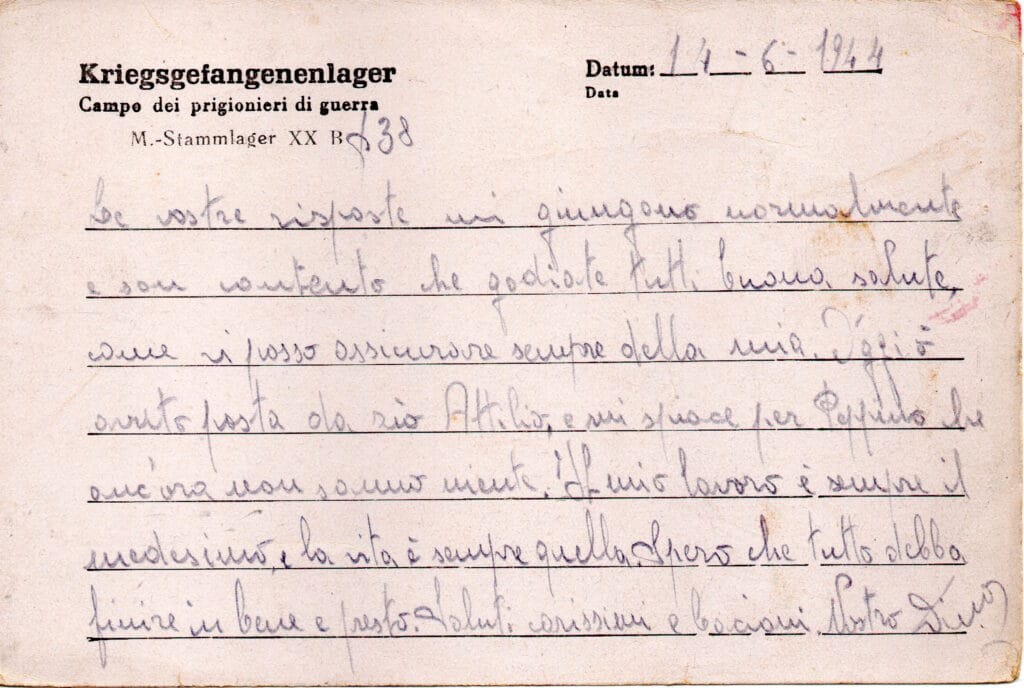 Kriegsgefangenenlager
Campo dei prigionieri di guerra
M.-Stammlager XX B 138
Datum: 14-6-1944
Data
Le vostre risposte mi giungono normalmente
e son contento che godiate tutti buona salute,
come vi posso assicurare sempre della mia. Oggi ò
avuto posta da zio Attilio, e mi spiace per Peppino che
ancora non sanno niente. Il mio lavoro è sempre il
medesimo, e la vita è sempre quella. Spero che tutto debba
finire in bene e presto. Saluti carissimi e bacioni. Vostro